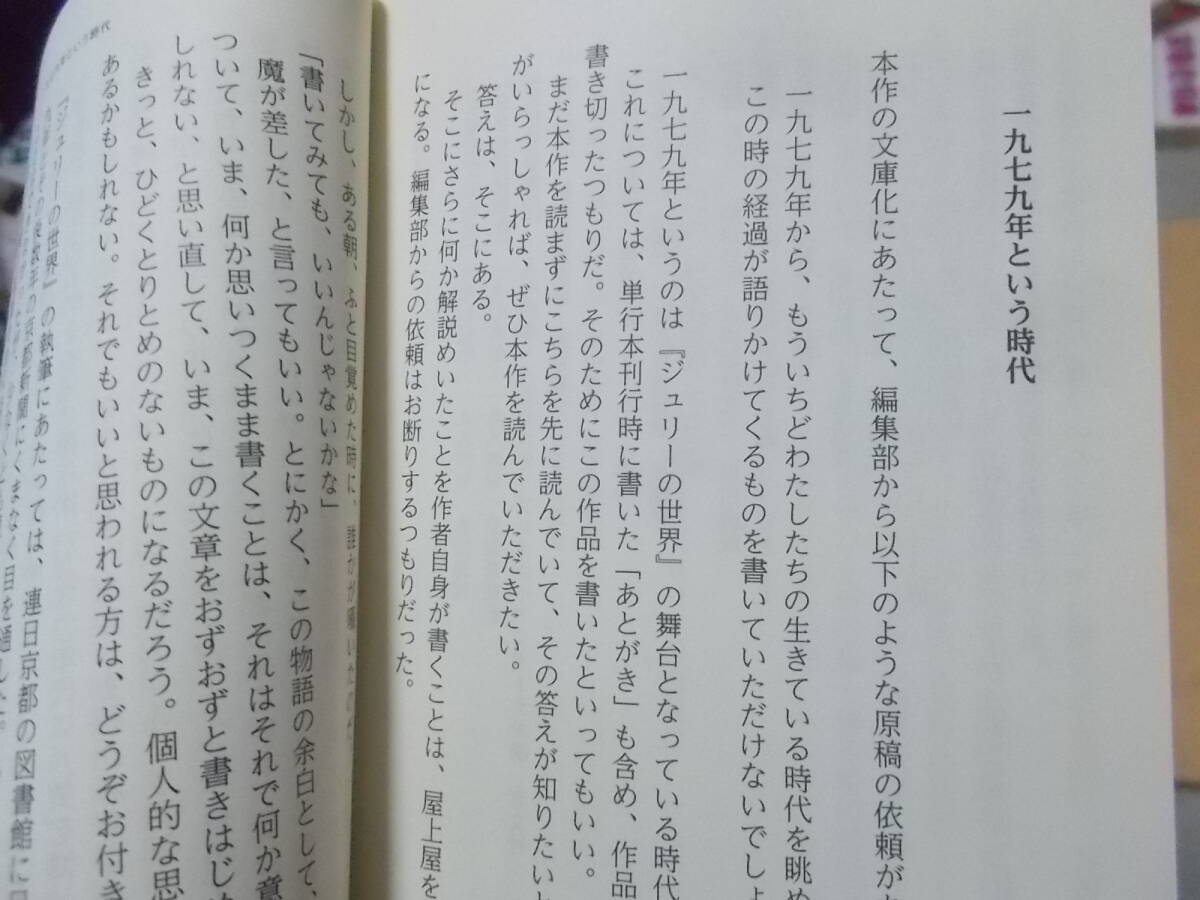 一九七九年という時代
本作の文庫化にあたって、編集部から以下のような原稿の依頼が
一九七九年から、もういちどわたしたちの生きている時代を眺め
この時の経過が語りかけてくるものを書いていただけないでしょ
一九七九年というのは『ジュリーの世界』の舞台となっている時代
これについては、単行本刊行時に書いた「あとがき」も含め、作品
書き切ったつもりだ。そのためにこの作品を書いたといってもいい。
まだ本作を読まずにこちらを先に読んでいて、その答えが知りたいと
がいらっしゃれば、ぜひ本作を読んでいただきたい。
答えは、そこにある。
そこにさらに何か解説めいたことを作者自身が書くことは、屋上屋を
になる。編集部からの依頼はお断りするつもりだった。
年という時代
しかし、ある朝、ふと目覚めた時に、誰かが囁いたのだ
「書いてみても、いいんじゃないかな」
魔が差した、と言ってもいい。とにかく、この物語の余白として、
ついて、いま、何か思いつくまま書くことは、それはそれで何か意
しれない、と思い直して、いま、この文章をおずおずと書きはじめ
きっと、ひどくとりとめのないものになるだろう。個人的な思
あるかもしれない。それでもいいと思われる方は、どうぞお付き
『ジュリーの世界』の執筆にあたっては、連日京都の図書館に
の京都新聞にくまなく目を通した。